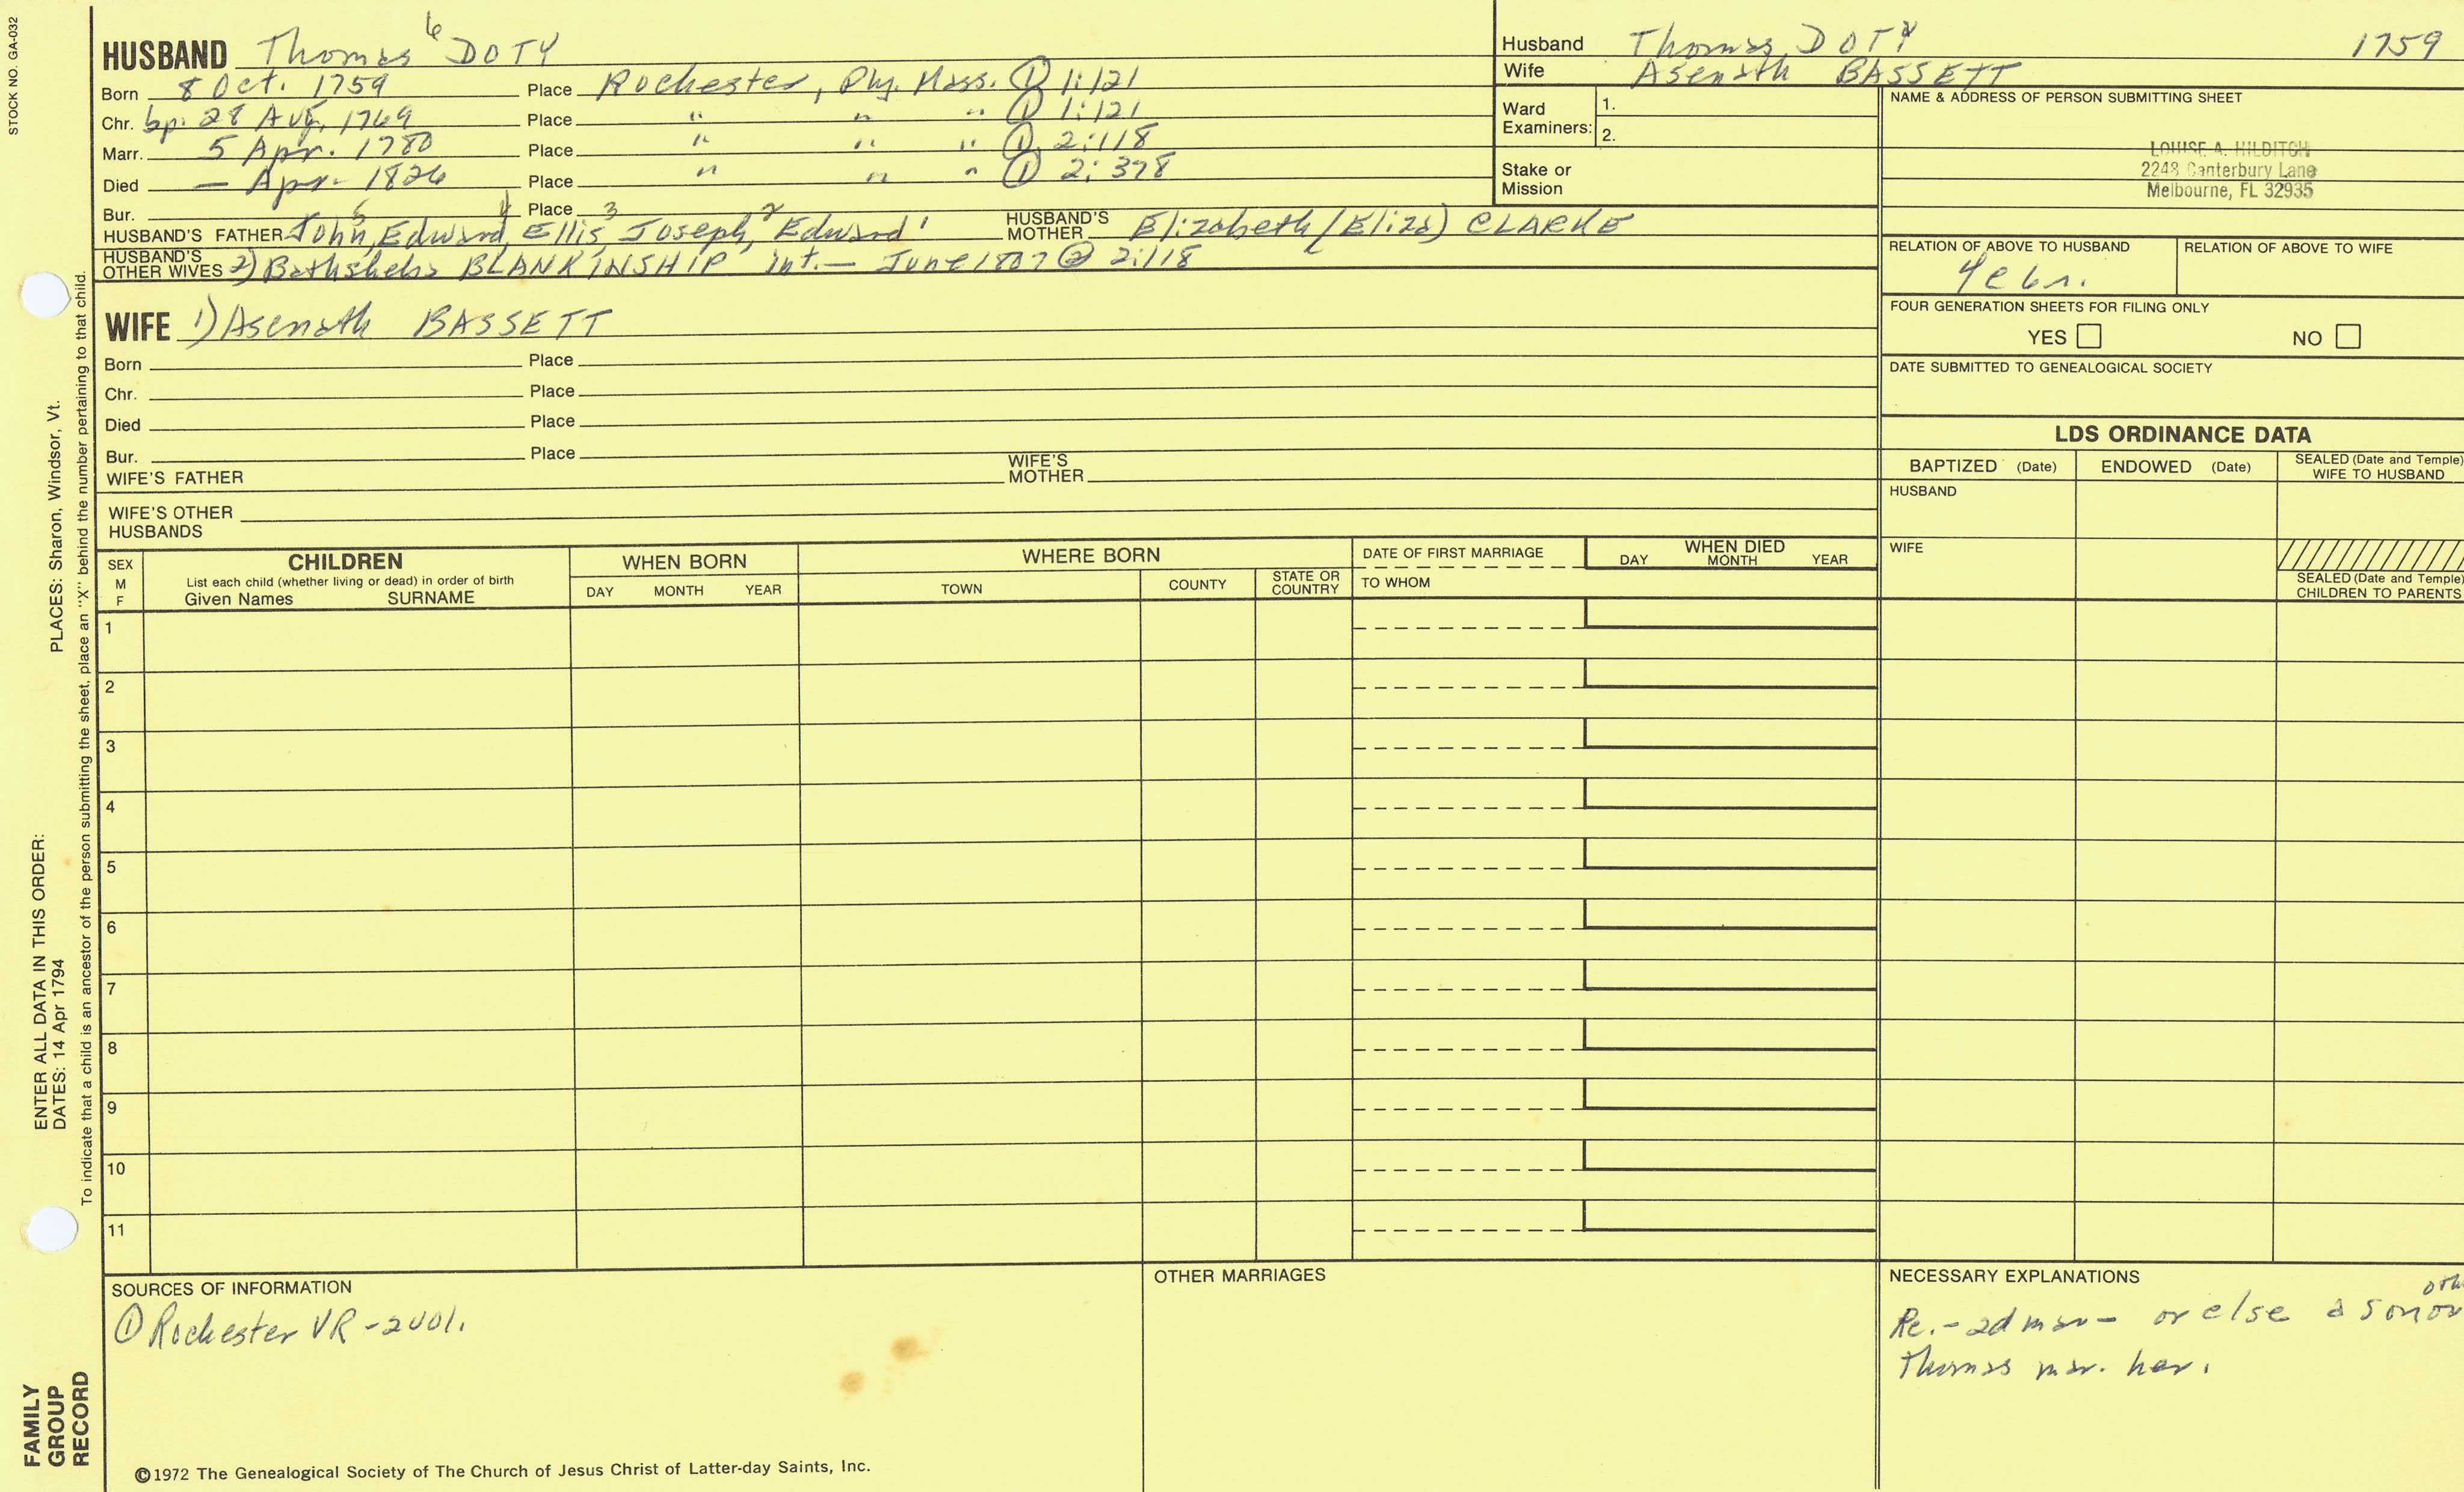 STOCK NO. GA-032
HUSBAND Thomas 6 DOTY
Born 8 Oct. 1759 Place Rochester, Ply. Mass. ① 1:121
Chr. bp. 28 Aug. 1769 Place " " " ① 1:121
Marr. 5 Apr. 1780 Place " " " ① 2:118
Died — Apr. 1826 Place " " " ① 2:378
Bur. Place
HUSBAND'S FATHER John 5, Edward 4, Ellis 3, Joseph 2, Edward 1 HUSBAND'S MOTHER Elizabeth (Eliza) CLARKE
HUSBAND'S OTHER WIVES 2) Bathsheba BLANKINSHIP int. — June 1807 @ 2:118
WIFE 1) Asenath BASSETT
Born Place
Chr. Place
Died Place
Bur. Place
WIFE'S FATHER WIFE'S MOTHER
WIFE'S OTHER HUSBANDS
Husband Thomas DOTY 1759
Wife Asenath BASSETT
Ward Examiners: 1.
2.
Stake or Mission
NAME & ADDRESS OF PERSON SUBMITTING SHEET
LOUISE A. HILDITCH
2248 Canterbury Lane
Melbourne, FL 32935
RELATION OF ABOVE TO HUSBAND RELATION OF ABOVE TO WIFE
FOUR GENERATION SHEETS FOR FILING ONLY
YES NO
DATE SUBMITTED TO GENEALOGICAL SOCIETY
LDS ORDINANCE DATA
BAPTIZED (Date) ENDOWED (Date) SEALED (Date and Temple) WIFE TO HUSBAND
HUSBAND
WIFE
SEALED (Date and Temple) CHILDREN TO PARENTS
SEX M F
CHILDREN
List each child (whether living or dead) in order of birth
Given Names SURNAME
WHEN BORN
DAY MONTH YEAR
WHERE BORN
TOWN COUNTY STATE OR COUNTRY
DATE OF FIRST MARRIAGE
TO WHOM
WHEN DIED
DAY MONTH YEAR
1
2
3
4
5
6
7
8
9
10
11
SOURCES OF INFORMATION
① Rochester VR - 2 vol.
OTHER MARRIAGES
NECESSARY EXPLANATIONS
Re. - 2d mar - or else a son or
Thomas mar. her.
©1972 The Genealogical Society of The Church of Jesus Christ of Latter-day Saints, Inc.
ENTER ALL DATA IN THIS ORDER:
DATES: 14 Apr 1794 PLACES: Sharon, Windsor, Vt.
To indicate that a child is an ancestor of the person submitting the sheet, place an "X" behind the number pertaining to that child.
FAMILY
GROUP
RECORD